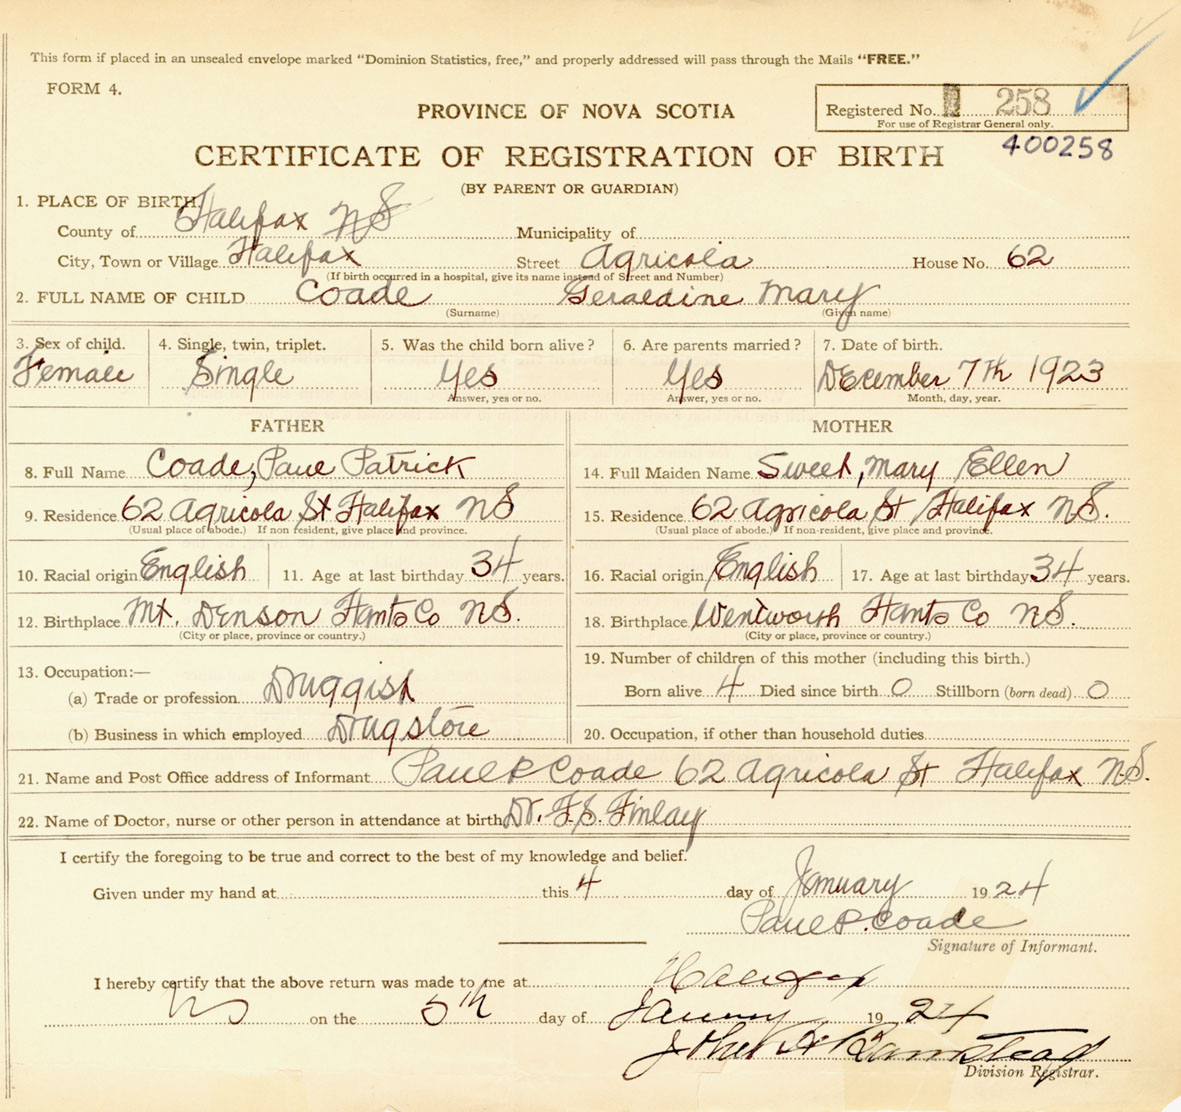 This form if placed in an unsealed envelope marked "Dominion Statistics, free," and properly addressed will pass through the Mails "FREE."
FORM 4.
PROVINCE OF NOVA SCOTIA
Registered No. 258
For use of Registrar General only.
400258
CERTIFICATE OF REGISTRATION OF BIRTH
(BY PARENT OR GUARDIAN)
1. PLACE OF BIRTH
County of Halifax NS Municipality of
City, Town or Village Halifax Street Agricola House No. 62
(If birth occurred in a hospital, give its name instead of Street and Number)
2. FULL NAME OF CHILD Coade Geraldine Mary
(Surname) (Given name)
3. Sex of child. 4. Single, twin, triplet. 5. Was the child born alive? 6. Are parents married? 7. Date of birth.
Female Single Yes Yes December 7th 1923
Answer, yes or no. Answer, yes or no. Month, day, year.
FATHER MOTHER
8. Full Name Coade, Paul Patrick 14. Full Maiden Name Sweet, Mary Ellen
9. Residence 62 Agricola St Halifax NS 15. Residence 62 Agricola St Halifax NS.
(Usual place of abode.) If non resident, give place and province. (Usual place of abode.) If non-resident, give place and province.
10. Racial origin English 11. Age at last birthday 34 years. 16. Racial origin English 17. Age at last birthday 34 years.
12. Birthplace Mt. Denson Hants Co NS. 18. Birthplace Wentworth Hants Co NS.
(City or place, province or country.) (City or place, province or country.)
13. Occupation:— 19. Number of children of this mother (including this birth.)
(a) Trade or profession Druggist Born alive 4 Died since birth 0 Stillborn (born dead) 0
(b) Business in which employed Drugstore 20. Occupation, if other than household duties
21. Name and Post Office address of Informant Paul P Coade 62 Agricola St Halifax N.S.
22. Name of Doctor, nurse or other person in attendance at birth Dr. F.S. Finlay
I certify the foregoing to be true and correct to the best of my knowledge and belief.
Given under my hand at this 4 day of January 1924
Paul P. Coade
Signature of Informant.
I hereby certify that the above return was made to me at Halifax
NS on the 5th day of January 1924
Division Registrar.